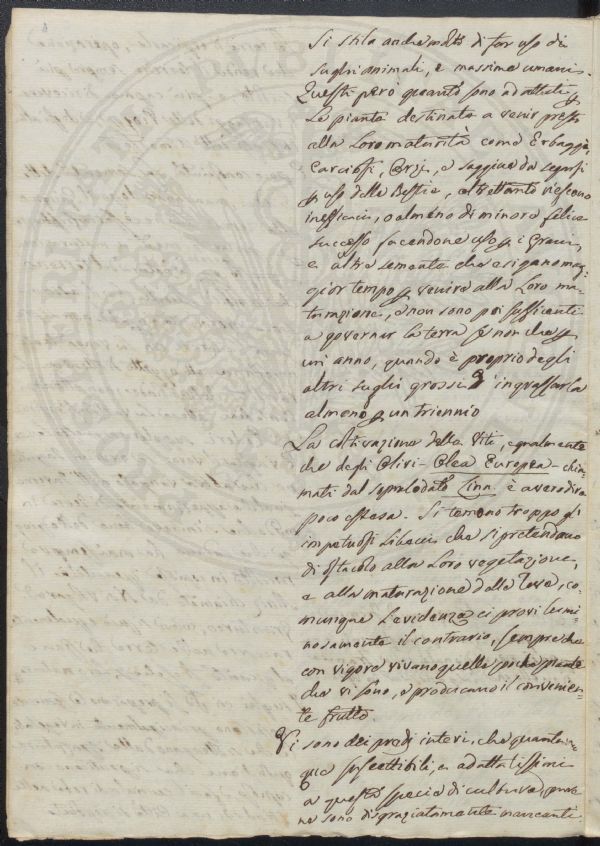 Si stila anche molto di far uso di
sughi animali, e massime umani.
Questi però quanto sono adattati p
le piante destinate a venir presto
alla loro maturità come Erbaggi,
Carciofi, Orzi, e saggine da segarsi
p uso delle Bestie, altrettanto riescono
inefficaci, o almeno di minore felice
successo facendone uso p i Grani,
e altre sementa che esigano mag=
gior tempo p venire alla loro ma=
turazione, e non sono poi sufficienti
a governar la terra se non che p
un anno, quando è proprio degli
altri sughi grossi d'ingrassarla
almeno p un triennio
La coltivazione della Viti, egualmente
che degli Olivi - Olea Europea - chia=
mati dal sopralodato Linn. è a vero dire
poco estesa. Si temono troppo gl'
impetuosi Libecci che si pretendono
di ostacolo alla loro vegetazione,
e alla maturazione delle Uve, co=
munque l'evidenza ci provi lumi=
nosamente il contrario, sempre che
con vigore vivano quelle poche piante
che vi sono, e producano il convenien=
te frutto
Vi sono dei predi interi, che quantun=
que suscettibili, e adattatissimi
a questa specie di cultura, pure
ne sono disgraziatamente mancanti